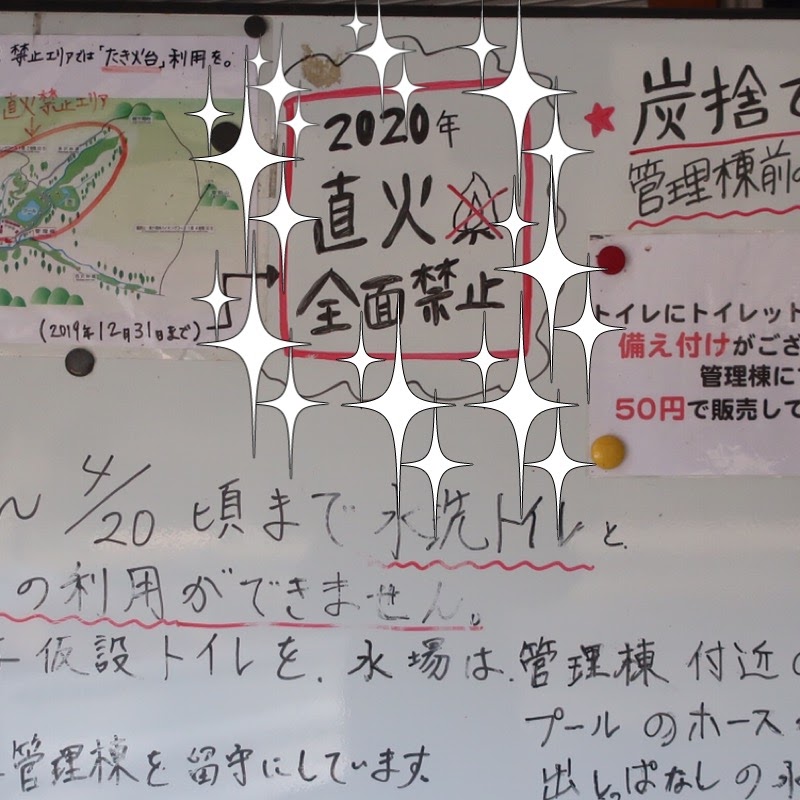 禁止エリアでは「たき火台」利用を。
直火禁止エリア
(2019年12月31日まで)
2020年
直火
全面禁止
炭捨て
管理棟前の
トイレにトイレット
備え付けがござ
管理棟に
50円で販売して
ん 4/20 頃まで 水洗トイレ と、
の利用ができません。
仮設トイレを、水場は、管理棟 付近の
プールのホース
管理棟を留守にしています。
出しっぱなしの水